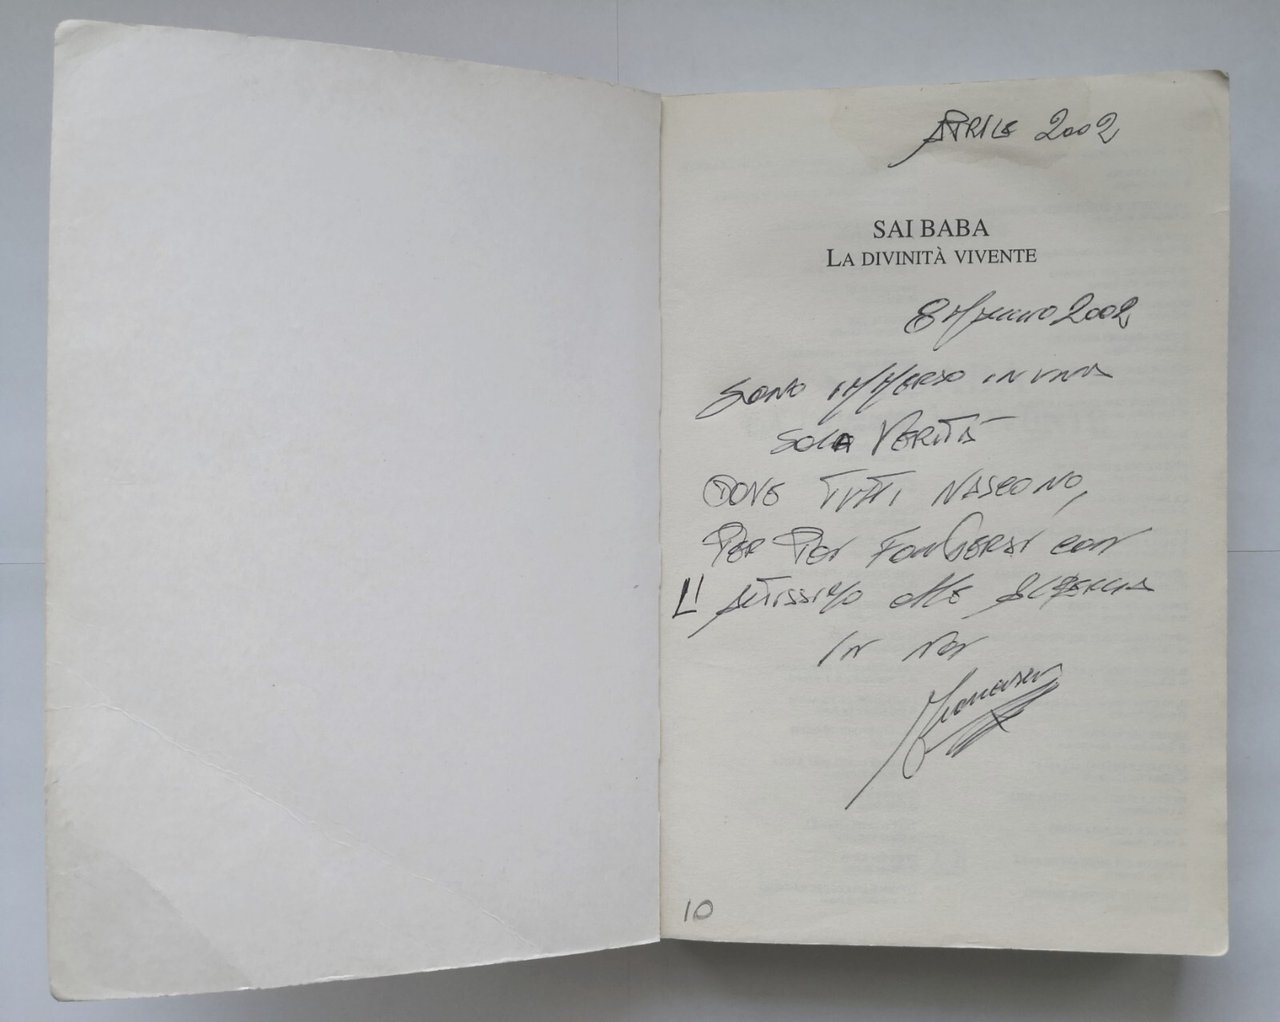 APRILE 2002
SAI BABA
LA DIVINITÀ VIVENTE
8 Maggio 2002
SONO IMMERSO IN UNA
SOLA VERITÀ
DOVE TUTTI NASCONO,
PER POI FONDERSI CON
L'ALTISSIMO CHE
IN NOI
Francesco
10